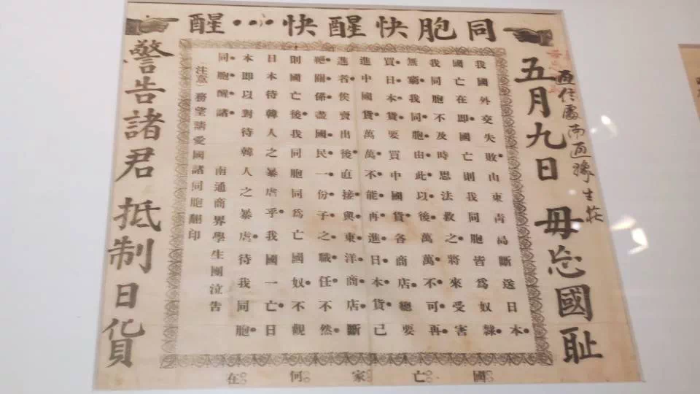 同胞快醒快…醒
五月九日 毋忘國耻
我國外交失敗山東青島斷送日本
國亡在即國亡則我同胞皆爲奴隸
我同胞不及時思法救之將來受害
無窮我同胞由此以後萬萬不可再
買日本貨要買中國貨各商店總要
進中國貨萬萬不能再進日本貨已
進者俟賣出後直接與東洋商店斷
絕關係盡國民一份子之職任不然
則國亡後我同胞同爲亡國奴不觀
日本待韓人之暴虐乎我國一亡日
本即以對待韓人之暴虐待我同胞
同胞醒諸 南通商界學生團泣告
注意 務望請愛國諸同胞翻印
警告諸君 抵制日貨
國亡家何在